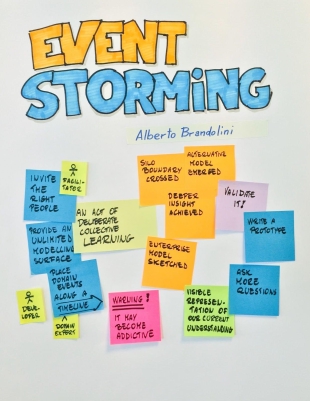 EVENT
STORMiNG
Alberto Brandolini
INVITE
THE
RIGHT
PEOPLE
FACILI-
TATOR
PROVIDE AN
UNLIMITED
MODELLING
SURFACE
PLACE
DOMAIN
EVENTS
ALONG A
TIMELINE
DEVE-
LOPER
DOMAIN
EXPERT
AN ACT OF
DELIBERATE
COLLECTIVE
LEARNING
WARNING!
IT MAY
BECOME
ADDICTIVE
SILO
BOUNDARY
CROSSED
ALTERNATIVE
MODEL
EMERGED
DEEPER
INSIGHT
ACHIEVED
ENTERPRISE
MODEL
SKETCHED
VISIBLE
REPRESEN-
TATION OF
OUR CURRENT
UNDERSTANDING
VALIDATE
IT!
WRITE A
PROTOTYPE
ASK
MORE
QUESTIONS